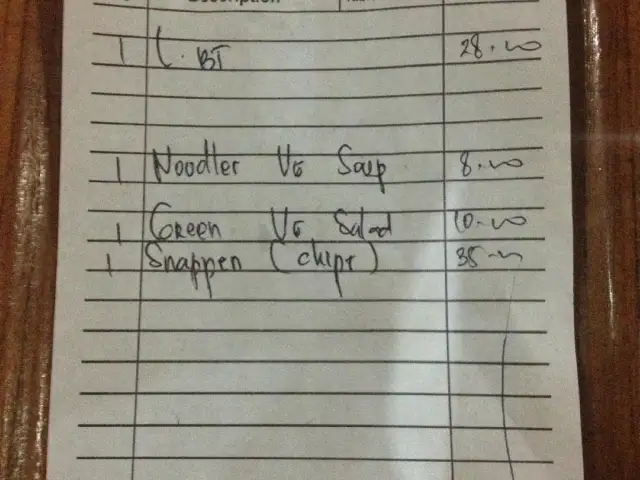 Description
1 C. BT 28.00
1 Noodler VG Soup 8.00
1 Green VG Salad 10.00
1 Snapper (chips) 35.00